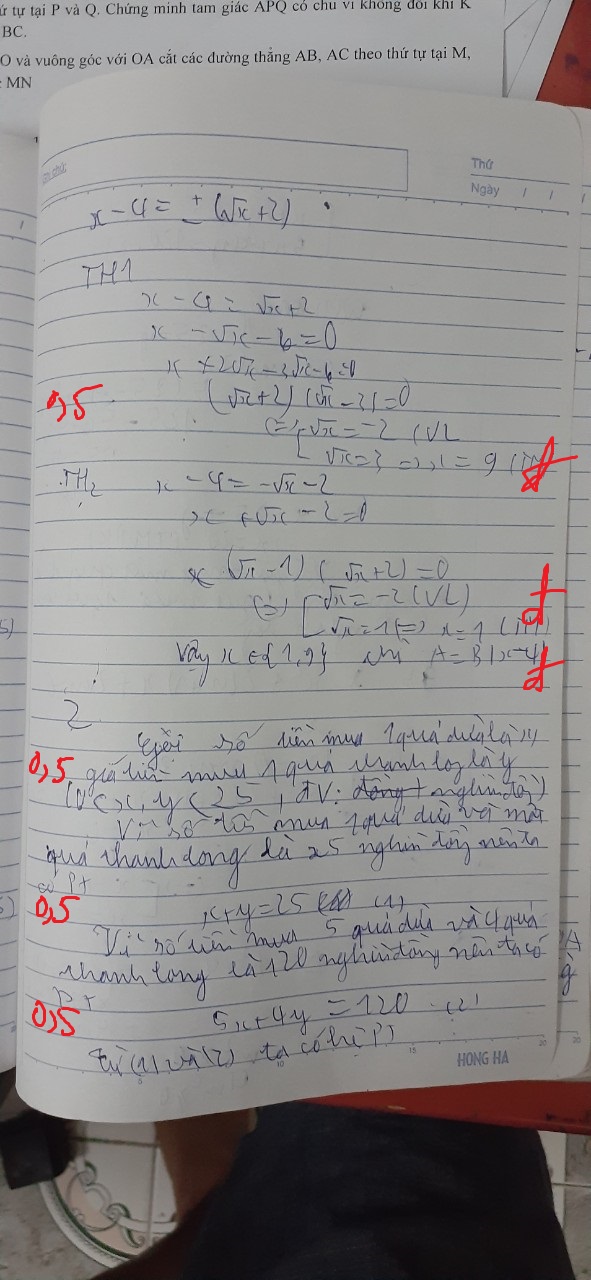 ứ tự tại P và Q. Chứng minh tam giác APQ có chu vi không đổi khi K
BC.
O và vuông góc với OA cắt các đường thẳng AB, AC theo thứ tự tại M,
MN
Thứ
Ngày / / /
x - 4 = ± (√x + 2)
TH1
x - 4 = √x + 2
x - √x - 6 = 0
x + 2√x - 3√x - 6 = 0
0,5 (√x + 2) (√x - 3) = 0
<=> [ √x = -2 (VL
√x = 3 => x = 9 (TM
TH2 x - 4 = -√x - 2
x + √x - 2 = 0
(√x - 1) (√x + 2) = 0
<=> [ √x = -2 (VL)
√x = 1 <=> x = 1 (TM)
Vậy x ∈ {1,9} thì A = B |x-4|
2
Gọi số tiền mua 1 quả dừa là x
0,5 giá tiền mua 1 quả thanh long là y
(0 < x, y < 25, ĐV: nghìn đồng)
Vì số tiền mua 1 quả dừa và một
quả thanh long là 25 nghìn đồng nên ta
có Pt
0,5 x + y = 25 (1)
Vì số tiền mua 5 quả dừa và 4 quả
thanh long là 120 nghìn đồng nên ta có
Pt
0,5 5x + 4y = 120 (2)
từ (1) và (2) ta có hệ PT
HONG HA